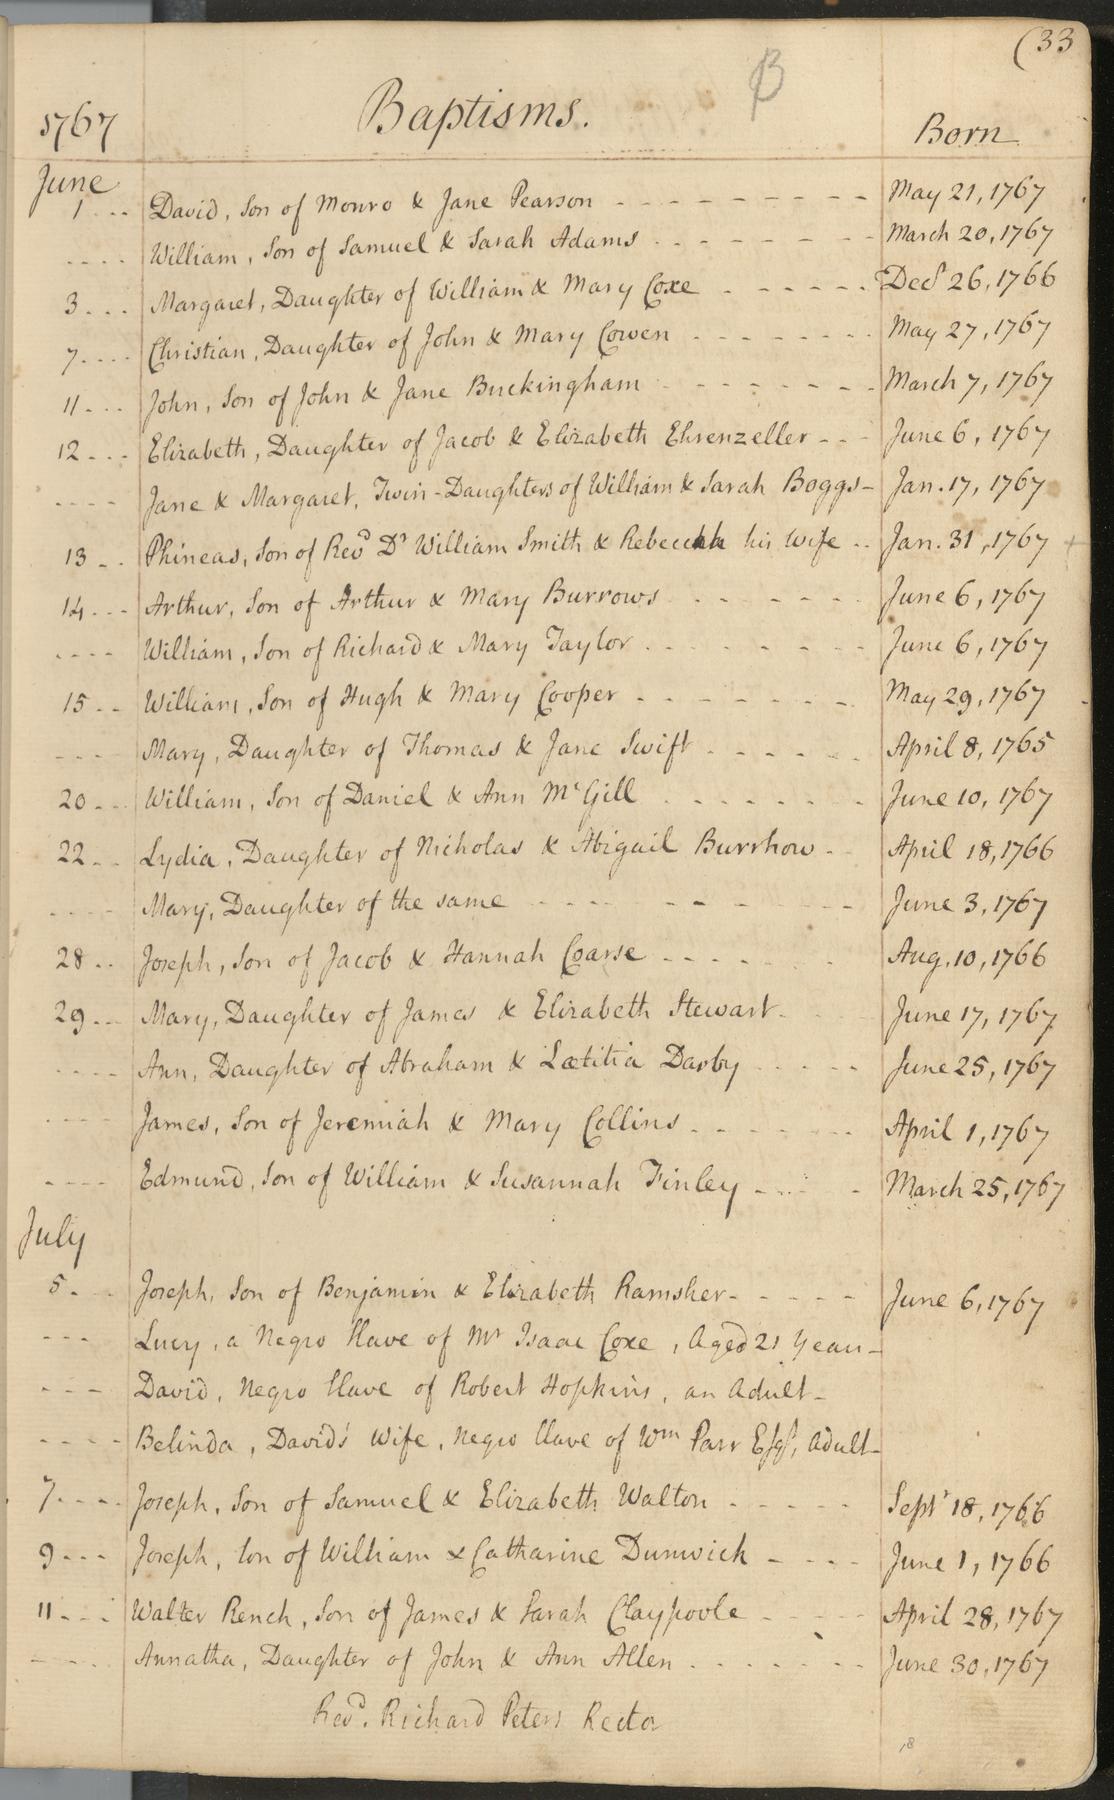 (33
B
1767 Baptisms. Born
June
1 David, Son of Monro & Jane Pearson May 21, 1767
William, Son of Samuel & Sarah Adams March 20, 1767
3 Margaret, Daughter of William & Mary Coxe Decr 26, 1766
7 Christian, Daughter of John & Mary Cowen May 27, 1767
11 John, Son of John & Jane Buckingham March 7, 1767
12 Elizabeth, Daughter of Jacob & Elizabeth Ehrenzeller June 6, 1767
Jane & Margaret, Twin-Daughters of William & Sarah Boggs Jan. 17, 1767
13 Phineas, Son of Revd Dr William Smith & Rebeccah his Wife Jan. 31, 1767
14 Arthur, Son of Arthur & Mary Burrows June 6, 1767
William, Son of Richard & Mary Taylor June 6, 1767
15 William, Son of Hugh & Mary Cooper May 29, 1767
Mary, Daughter of Thomas & Jane Swift April 8, 1765
20 William, Son of Daniel & Ann McGill June 10, 1767
22 Lydia, Daughter of Nicholas & Abigail Burrhow April 18, 1766
Mary, Daughter of the same June 3, 1767
28 Joseph, Son of Jacob & Hannah Coarse Aug. 10, 1766
29 Mary, Daughter of James & Elizabeth Stewart June 17, 1767
Ann, Daughter of Abraham & Lætitia Darby June 25, 1767
James, Son of Jeremiah & Mary Collins April 1, 1767
Edmund, Son of William & Susannah Finley March 25, 1767
July
5 Joseph, Son of Benjamin & Elizabeth Ramsher June 6, 1767
Lucy, a Negro Slave of Mr Isaac Coxe, Aged 21 Years
David, Negro Slave of Robert Hopkins, an Adult
Belinda, David's Wife, Negro Slave of Wm Parr Esqr, Adult
7 Joseph, Son of Samuel & Elizabeth Walton Septr 18, 1766
9 Joseph, Son of William & Catharine Dunwick June 1, 1766
11 Walter Rench, Son of James & Sarah Claypoole April 28, 1767
Annatha, Daughter of John & Ann Allen June 30, 1767
Revd. Richard Peters Rector
18